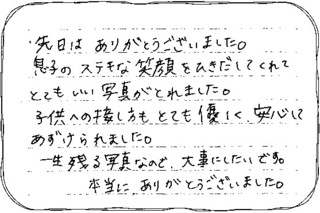 先日は ありがとうございました。
息子の ステキな 笑顔を ひきだしてくれて
とても いい 写真が とれました。
子供への接し方も とても 優しく、安心して
あずけられました。
一生 残る 写真なので、大事にしたいです。
本当に ありがとうございました。